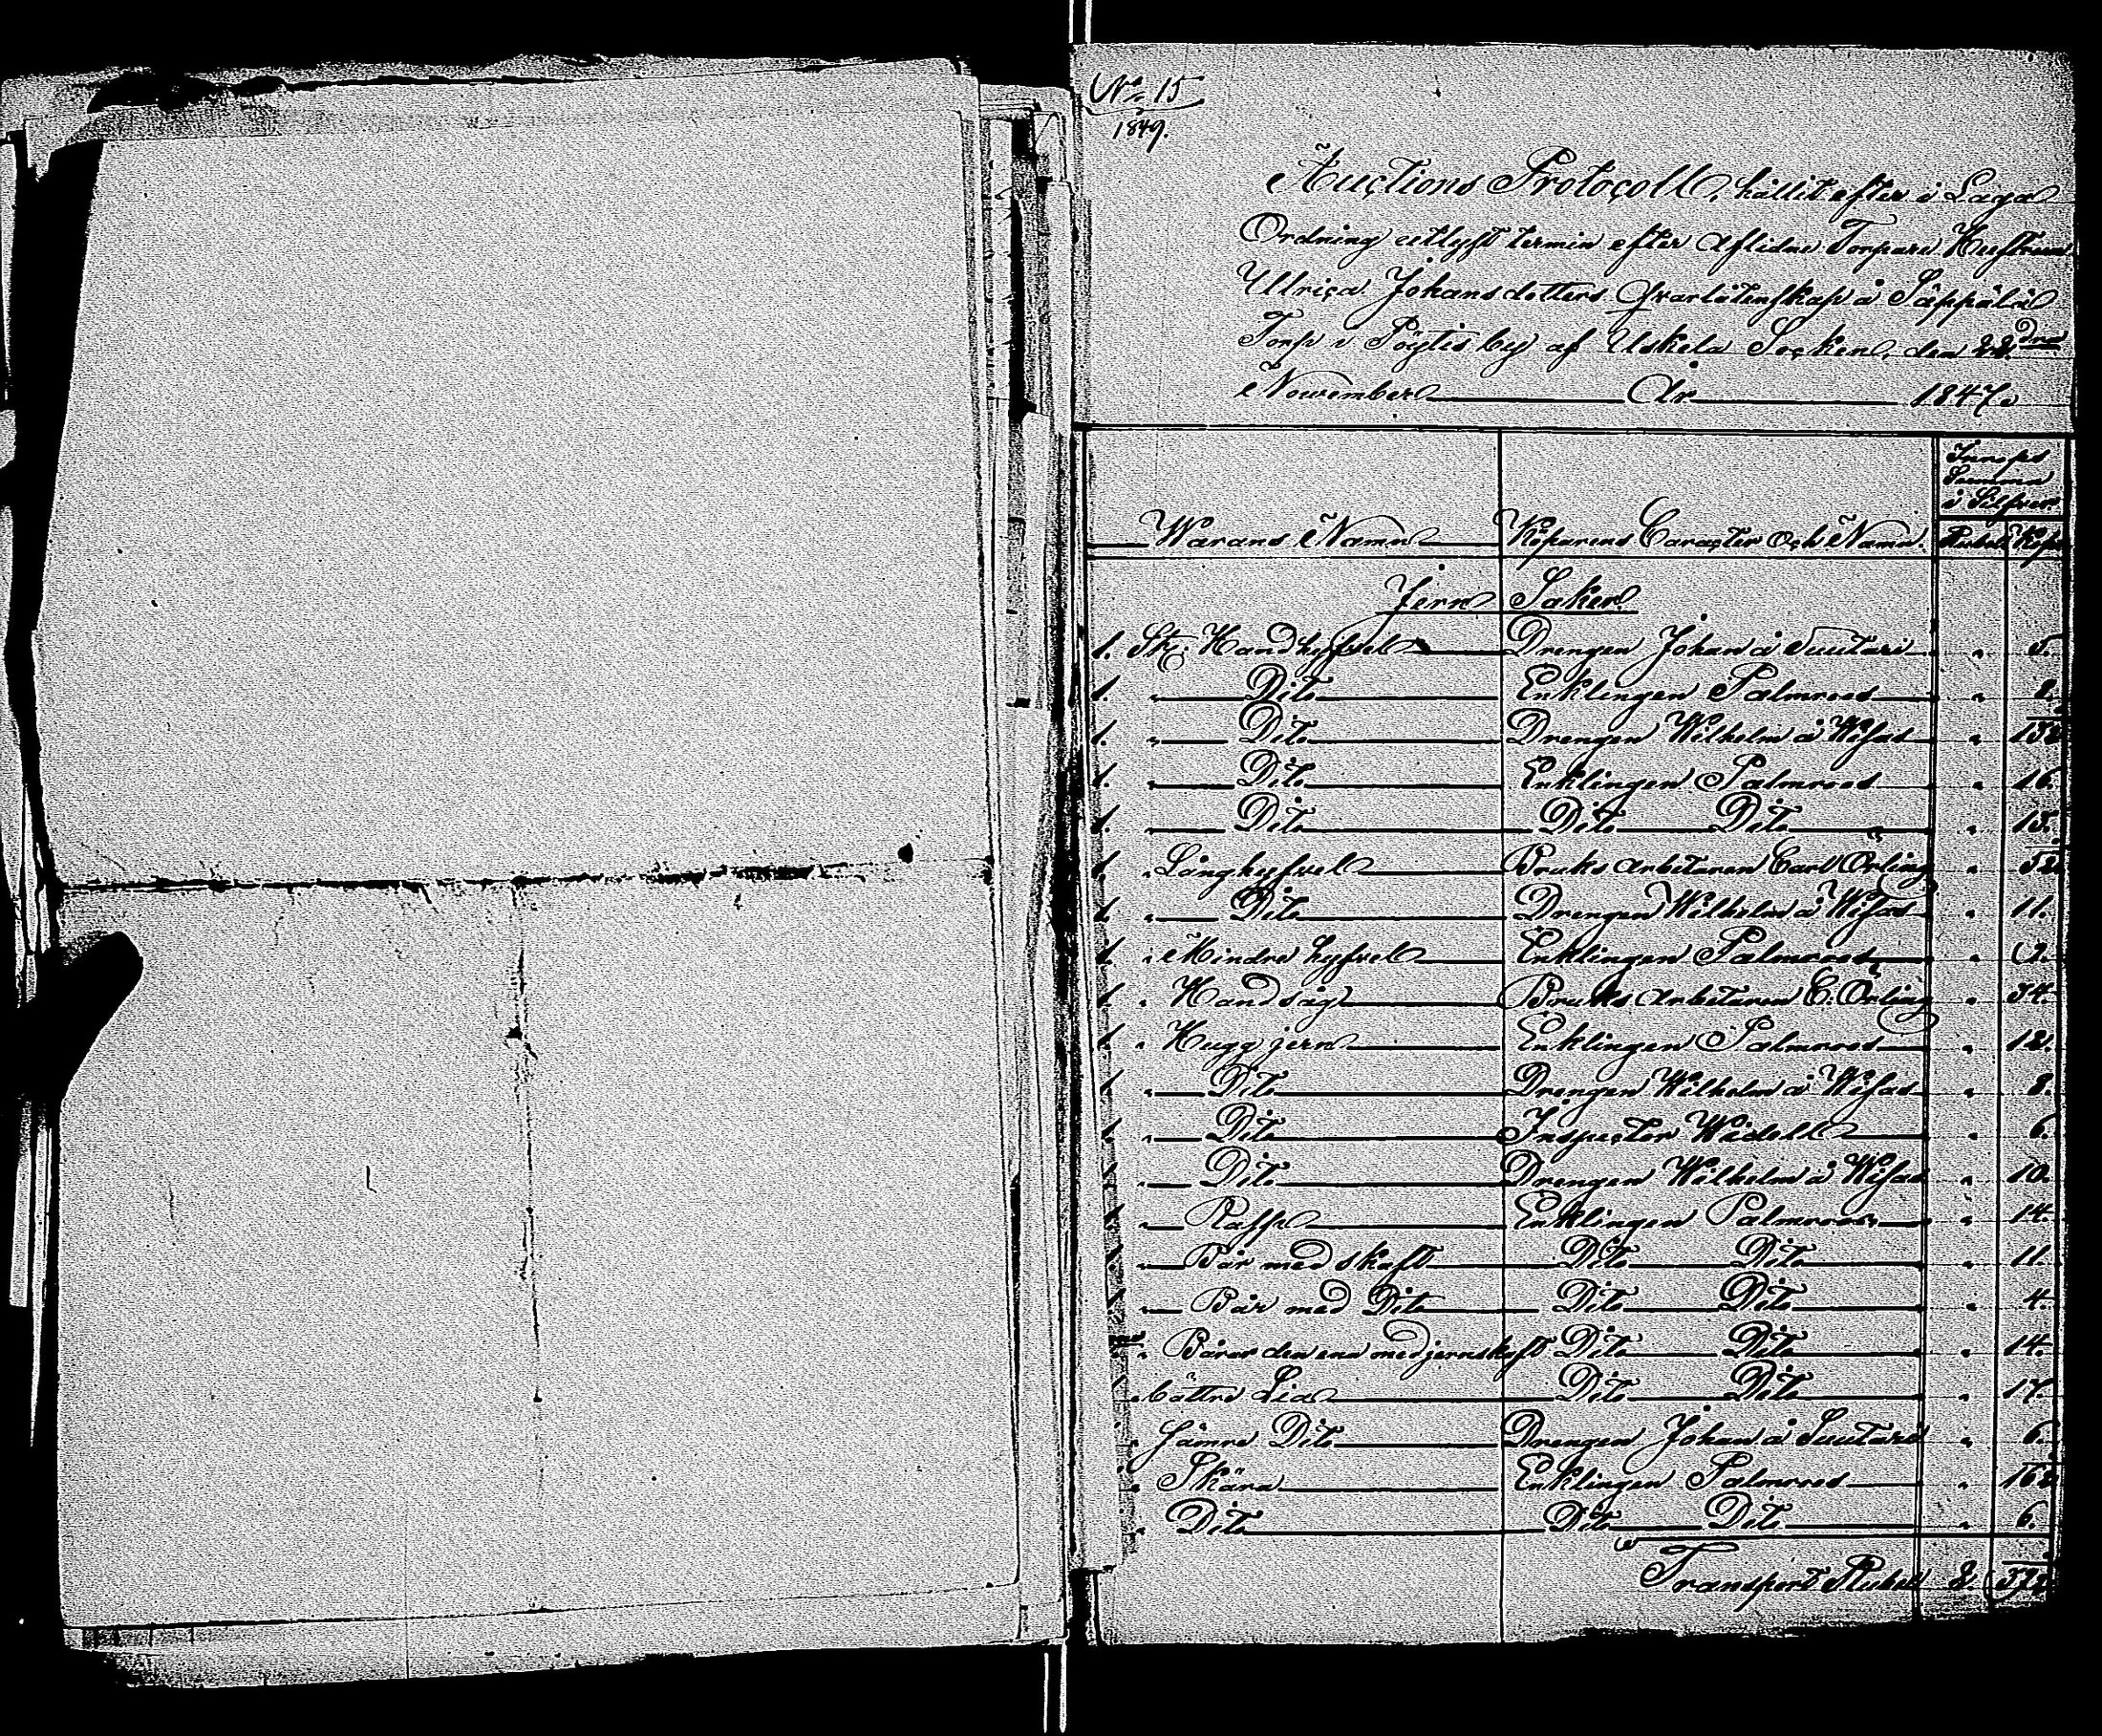 No 15
1849.
Auctions Protocoll, hållit efter i Laga
Ordning utlyst termin efter Aflidne Torpare Hustrun
Ulrica Johansdotters Qvarlåtenskap å Säppälä
Torp i Pöytis by af Uskela Socken, den 22dra
November År 1847.
Inrops
Summan
i Silfver.
Warans Namn Köparens Caracter och Namn. Rubel Kop.
Jern Saker.
1. St. Handhyfvel Drengen Johan å Suutari " 5.
1. " Dito Enklingen Palmroos " 8.
1. " Dito Drengen Wilhelm å Wisas "
1. " Dito Enklingen Palmroos " 16.
1. " Dito Dito Dito " 15.
1. " Långhyfvel Bruks Arbetaren Carl Örling "
1. " Dito Drengen Wilhelm å Wisas " 11.
1. " Mindre hyfvel Enklingen Palmroos "
1. " Handsåg Bruks Arbetaren C: Örling " 34.
1. " Hugg jern Enklingen Palmroos " 12.
1. " Dito Drengen Wilhelm å Wisas " 8.
1. " Dito Inspector Widell " 6.
1. " Dito Drengen Wilhelm å Wisas " 10.
1. " Rasp Enklingen Palmroos " 14.
1. " Bår med skaft Dito Dito " 11.
1. " Bår med Dito Dito Dito " 4.
" Bårar den ena med jernskaft Dito Dito " 14.
1 " bättre Lia Dito Dito " 17.
" sämre Dito Drengen Johan å Suutari " 6.
" Skära Enklingen Palmroos "
" Dito Dito Dito " 6.
Transport Rubel 2.